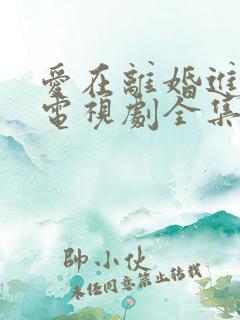 愛在離婚進
電視劇全集
帥小伙
未經同意禁止轉載